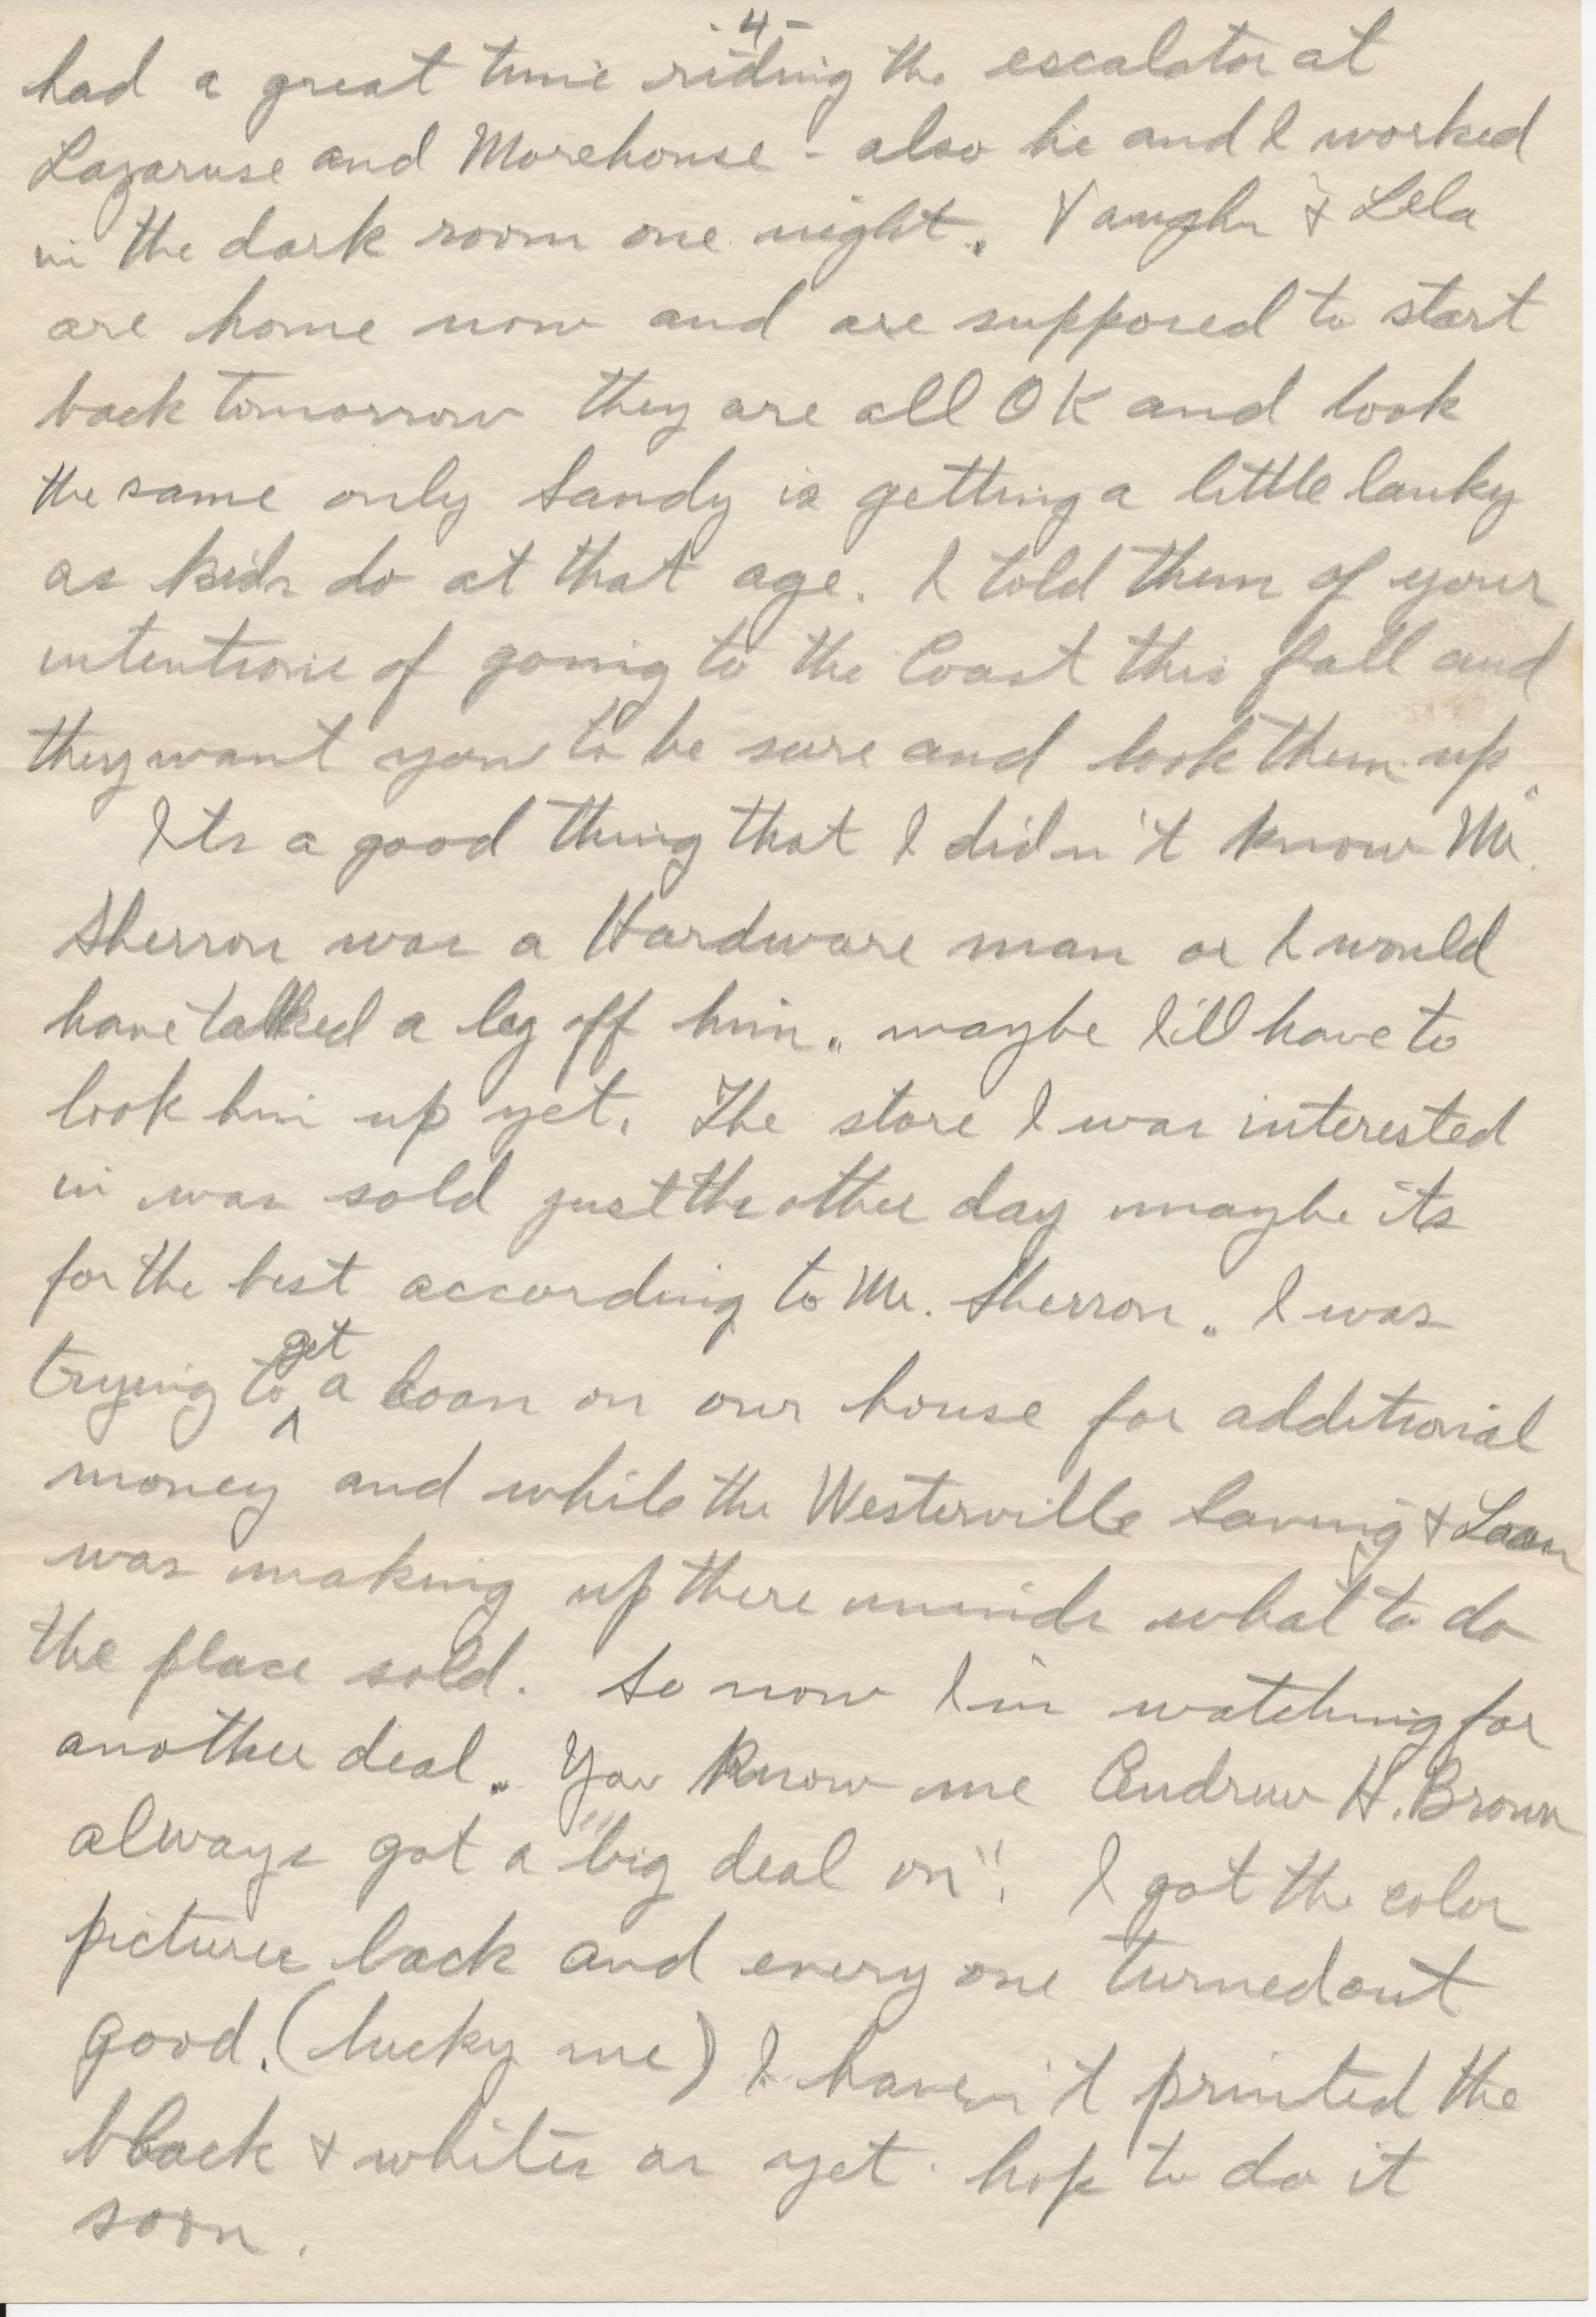 -4-
had a great time riding the escalator at
Lazaruse and Morehouse - also he and I worked
in the dark room one night. Vaughn & Lela
are home now and are supposed to start
back tomorrow they are all OK and look
the same only Sandy is getting a little lanky
as kids do at that age. I told them of your
intentions of going to the Coast this fall and
they want you to be sure and look them up.
Its a good thing that I didn't know Mr.
Sherron was a Hardware man or I would
have talked a leg off him. maybe I'll have to
look him up yet. The store I was interested
in was sold just the other day maybe its
for the best according to Mr. Sherron. I was
trying to get a loan on our house for additional
money and while the Westerville Saving & Loan
was making up there minds what to do
the place sold. So now I'm watching for
another deal. You know me Andrew H. Brown
always got a "big deal on". I got the color
pictures back and every one turned out
good. (lucky me) I haven't printed the
black & whites as yet. hope to do it
soon.